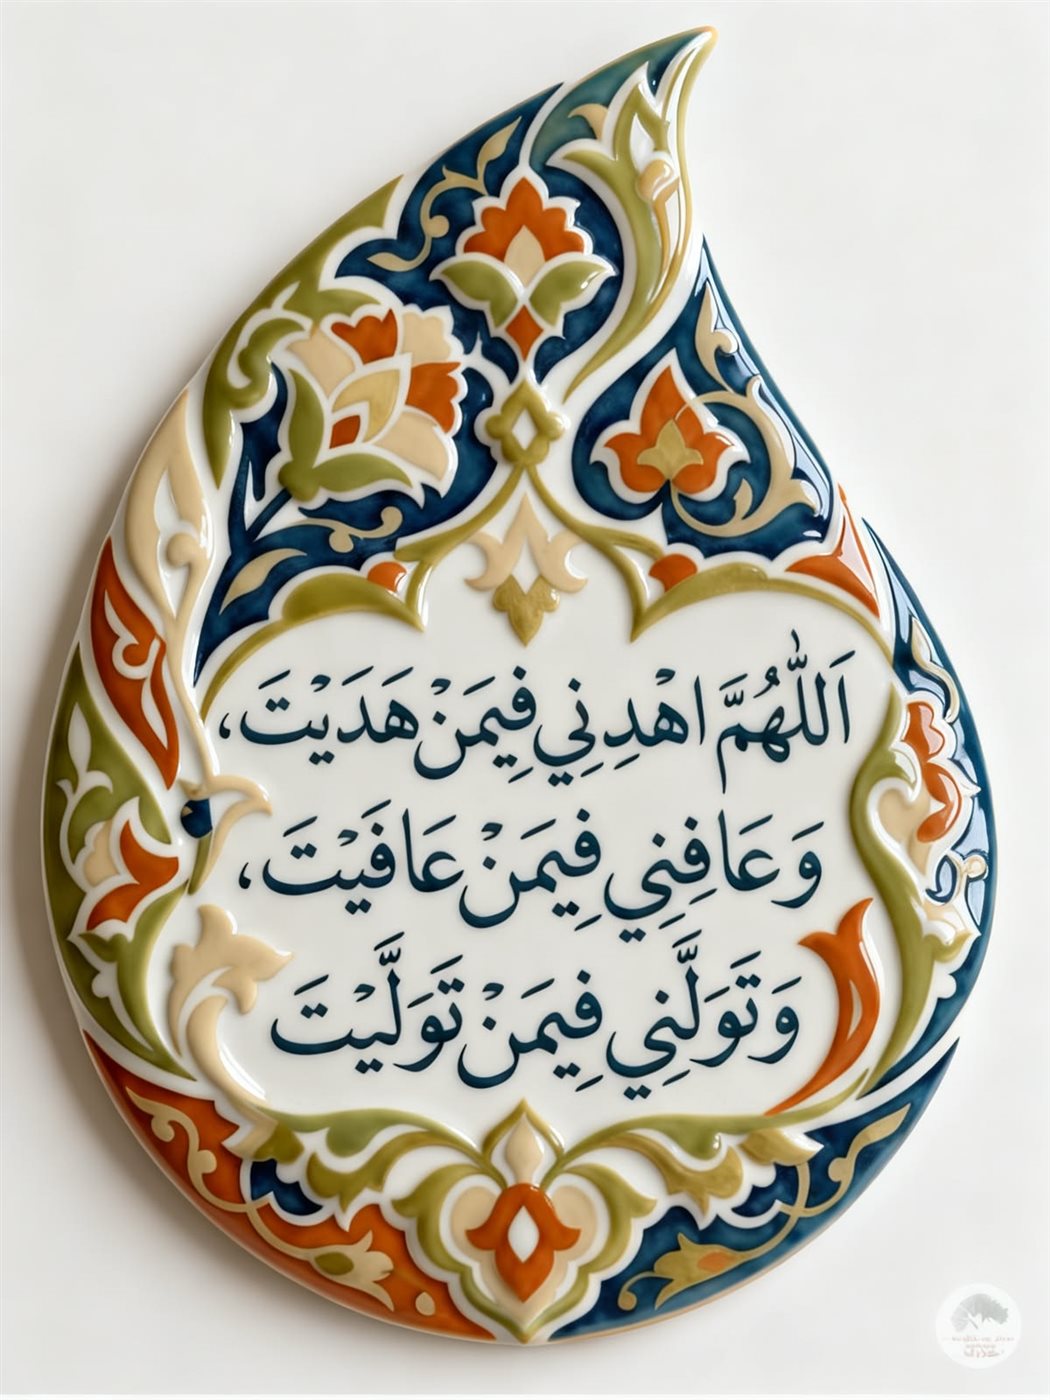 اَللّٰهُمَّ اهْدِنِي فِيمَنْ هَدَيْتَ،
وَعَافِنِي فِيمَنْ عَافَيْتَ،
وَتَوَلَّنِي فِيمَنْ تَوَلَّيْتَ